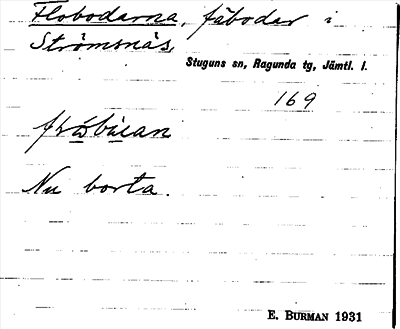 Flobodarna, fäbodar i
Strömsnäs,
Stuguns sn, Ragunda tg, Jämtl. l.
169
Nu borta.
E. BURMAN 1931